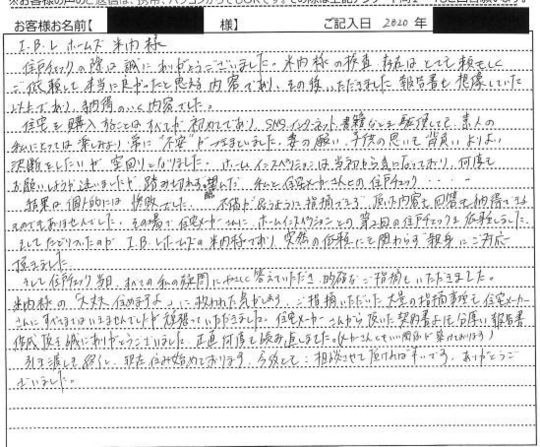 お客様お名前【 様】 ご記入日 2020 年
I.B.L ホームズ 米内様
住戸チェックの際は誠にありがとうございました。米内様の検査、存在はとても頼もしく
ご依頼して本当に良かったと思える内容であり、その後いただきました報告書も想像していた
以上であり、納得のいく内容でした。
住宅を購入することはすべてが初めてであり、SNS、インターネット、書籍などを駆使しても、素人の
私にとっては楽しみより常に"不安"がつきまといました。妻の願い、子供の思いを背負い、よりよい
決断をしたいが空回りとなりました。ホームインスペクションは当初から気になっており、何度も
お願いしようか迷いましたが踏み切れず 望んだ 私と住宅メーカーさんとの住戸チェック・・・・
結果は個人的には惨敗でした。不備が思うように指摘できず、頂いた内容も回答も納得できる
ものでもありませんでした。その場で住宅メーカーさんに、ホームインスペクションとの第2回の住戸チェックを依頼をしました。
そしてたどりついたのが I.B.Lホームズの米内様であり、突然の依頼にも関わらず親身にご対応
頂きました。
そして住戸チェック当日、すべての私の疑問にやさしく答えていただき、的確なご指摘もいただきました。
米内様の「大丈夫、住めますよ」に救われた気がします。ご指摘いただいた大量の指摘事項も住宅メーカー
さんにすべてとはいきませんでしたが頑張っていただきました。住宅メーカーさんから頂いた契約書よりも分厚い報告書
作成頂き誠にありがとうございました。正直何度も読み直しました。
引き渡しも終え、現在住み始めております。今後とも、相談させて頂ければ幸いです。ありがとうご
ざいました。